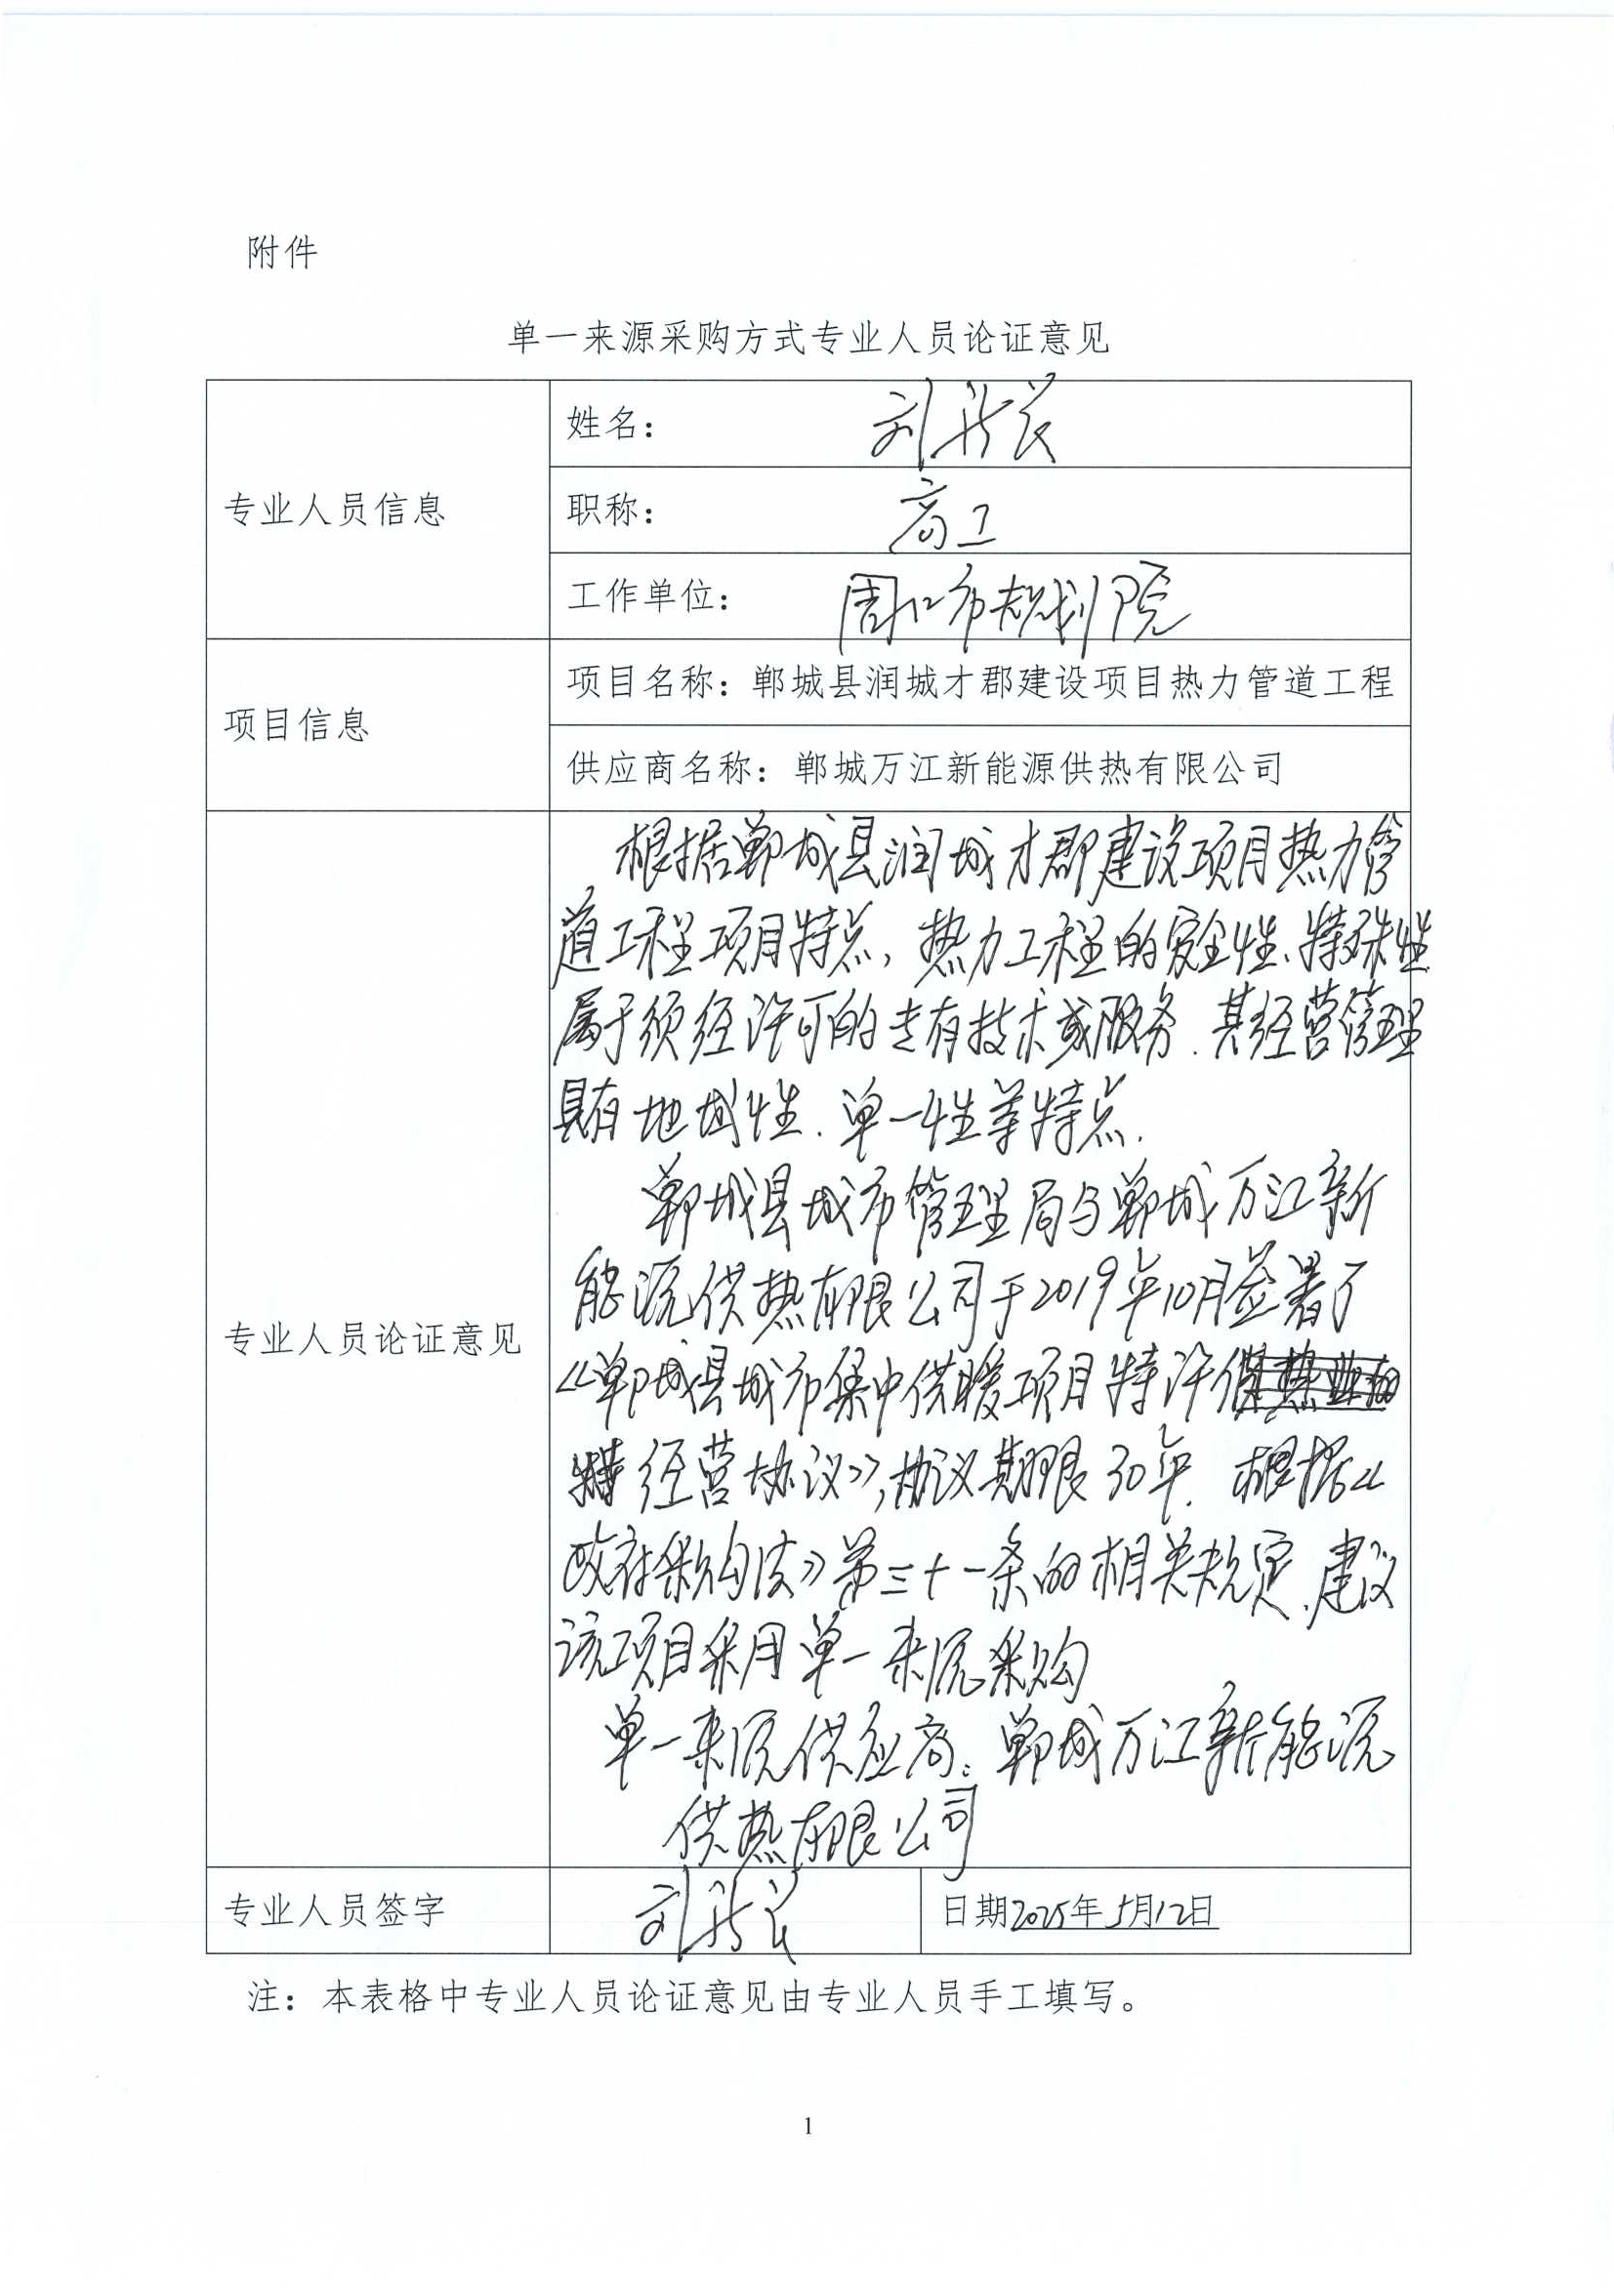 附件
单一来源采购方式专业人员论证意见
专业人员信息
姓名：刘
职称：高工
工作单位：周口市规划院
项目信息
项目名称：郸城县润城才郡建设项目热力管道工程
供应商名称：郸城万江新能源供热有限公司
专业人员论证意见
根据郸城县润城才郡建设项目热力管
道工程项目特点，热力工程的安全性、特殊性
属于须经许可的专有技术或服务．其经营管理
具有地域性．单一性等特点．
郸城县城市管理局与郸城万江新
能源供热有限公司于2019年10月签署了
《郸城县城市集中供暖项目特许
经营协议》，协议期限30年．根据《
政府采购法》第三十一条的相关规定．建议
该项目采用单一来源采购
单一来源供应商：郸城万江新能源
供热有限公司
专业人员签字
刘
日期2025年5月12日
注：本表格中专业人员论证意见由专业人员手工填写。
1